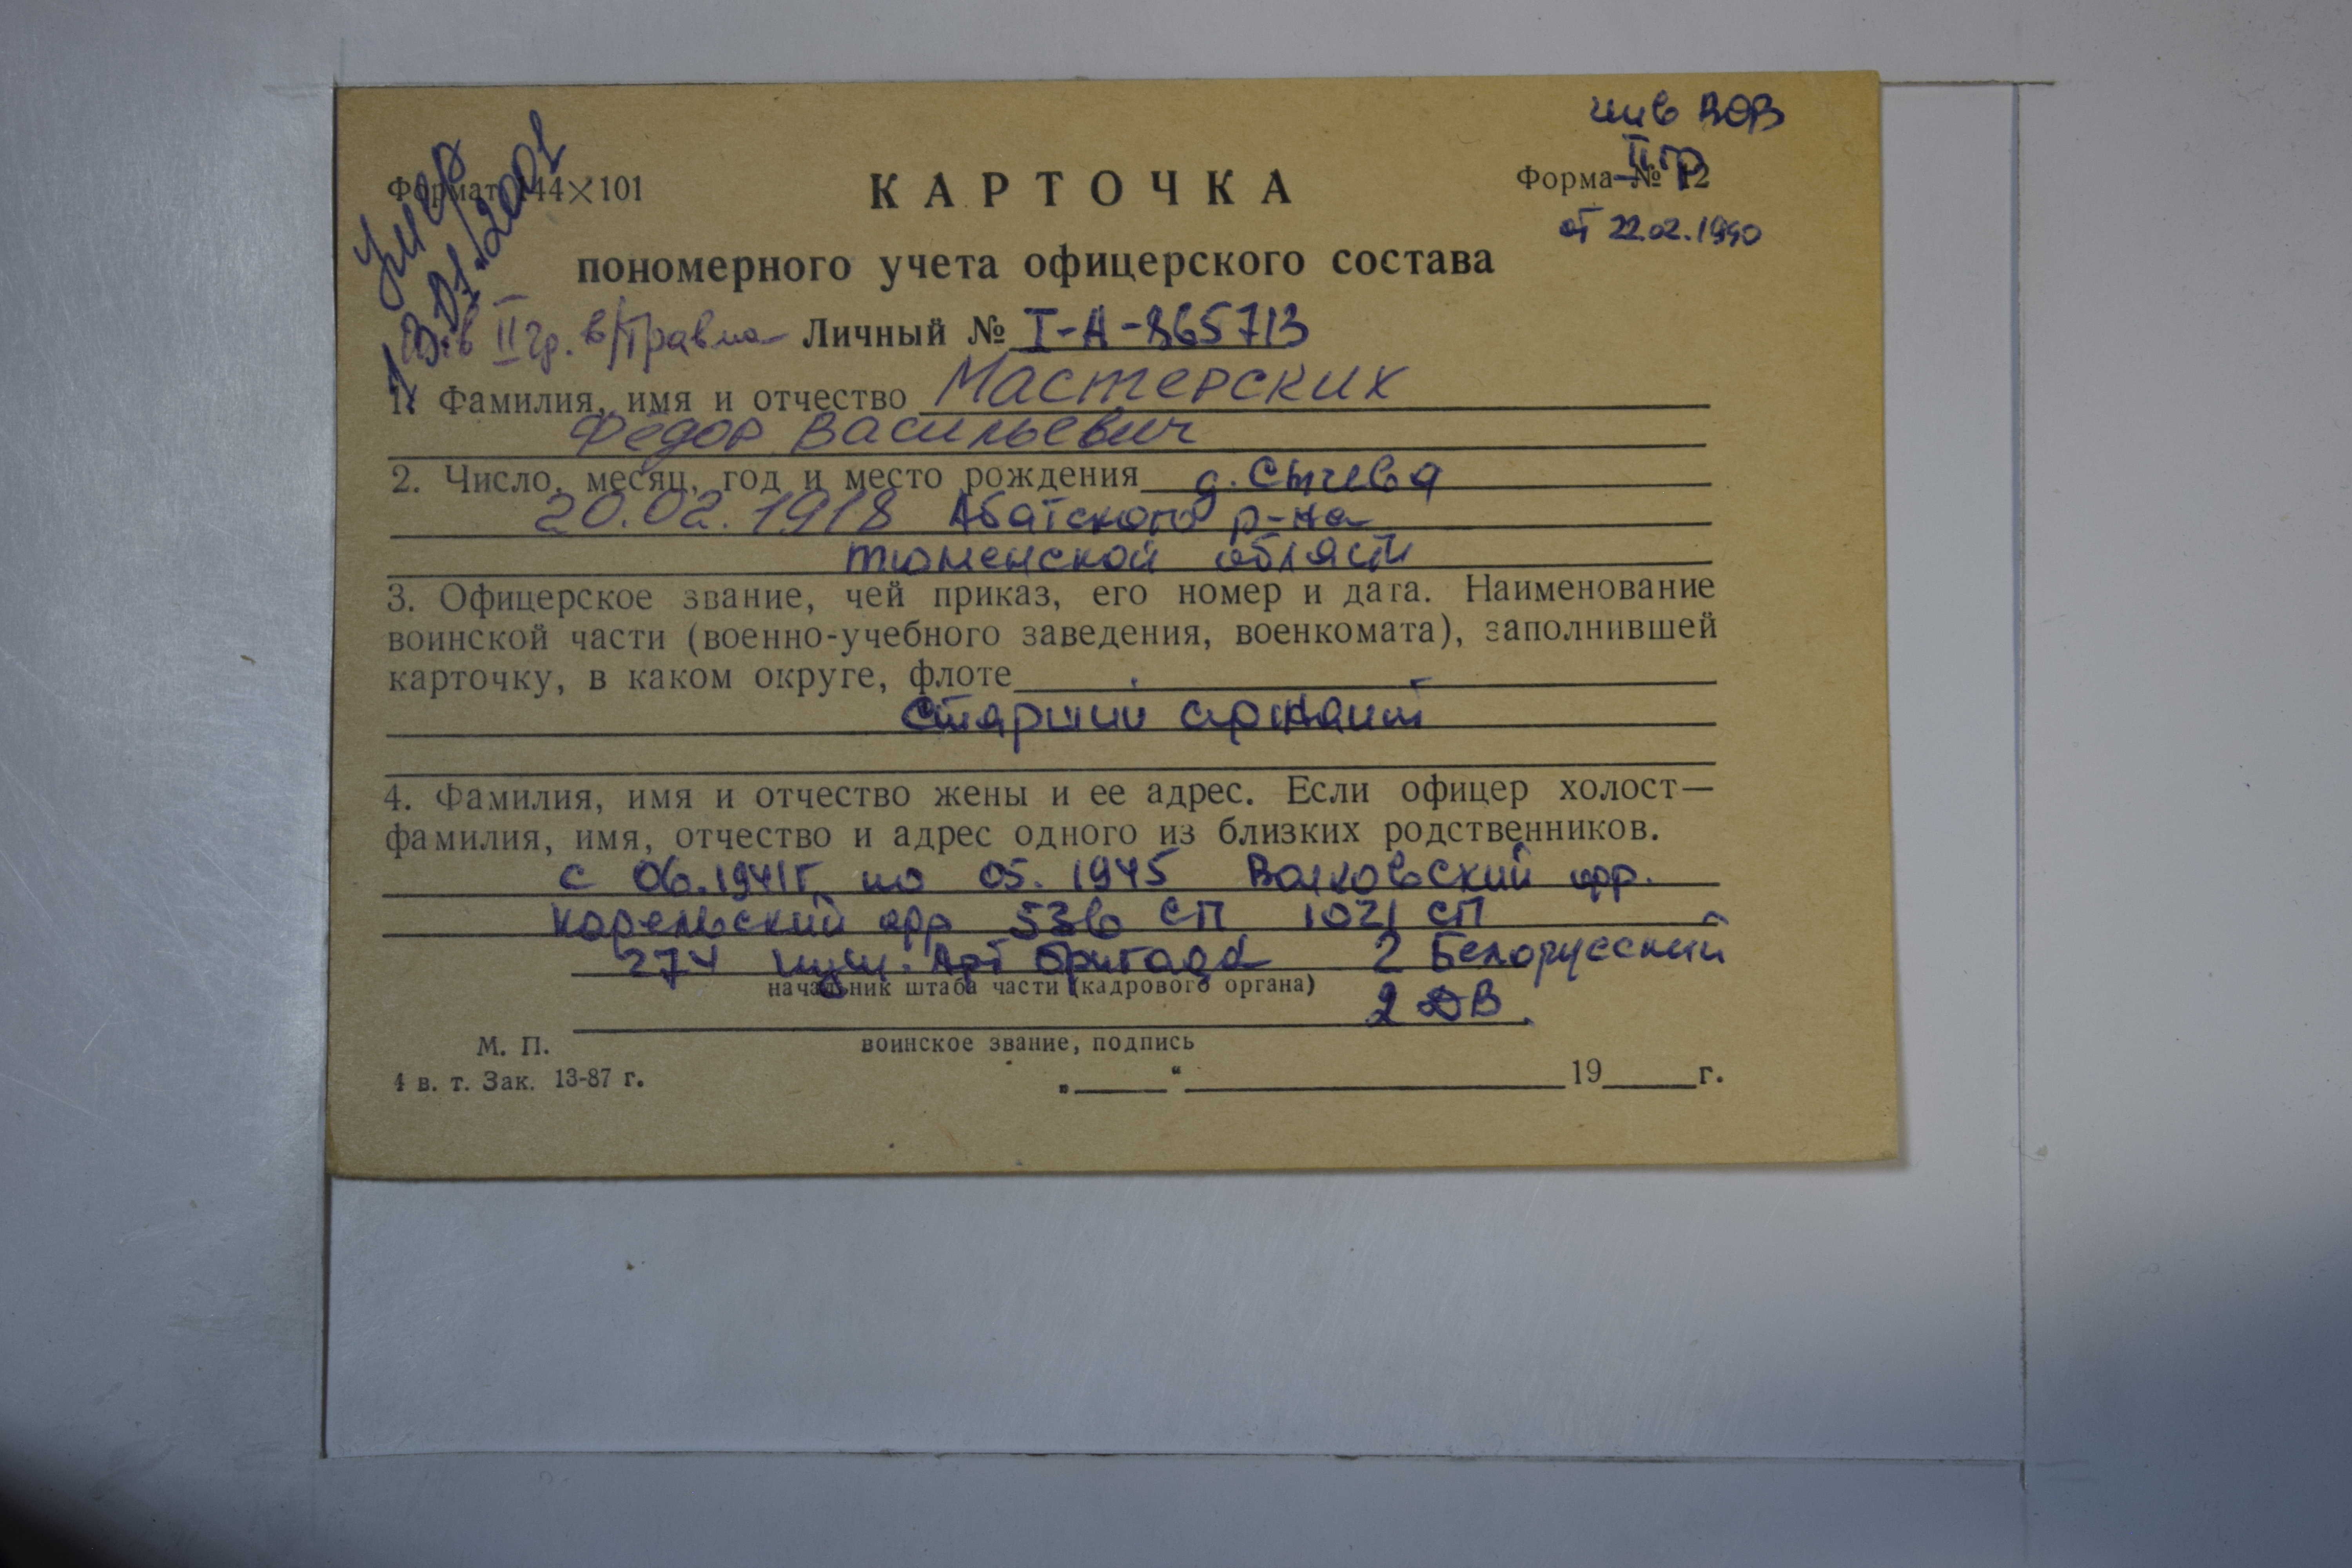 умер
13.01.2001
инв ВОВ
II гр
от 22.02.1990
Формат 144×101
КАРТОЧКА
Форма № 12
пономерного учета офицерского состава
II гр. в/травма Личный № I-А-865713
1. Фамилия, имя и отчество Мастерских
Федор Васильевич
2. Число, месяц, год и место рождения д. Сычева
20.02.1918 Абатского р-на
Тюменской области
3. Офицерское звание, чей приказ, его номер и дата. Наименование
воинской части (военно-учебного заведения, военкомата), заполнившей
карточку, в каком округе, флоте
старший сержант
4. Фамилия, имя и отчество жены и ее адрес. Если офицер холост—
фамилия, имя, отчество и адрес одного из близких родственников.
с 06.1941г. по 05.1945 Волховский фр.
Карельский фр 536 СП 1021 СП
274 Арт бригада 2 Белорусский
начальник штаба части (кадрового органа)
2 ДВ.
М. П. воинское звание, подпись
4 в. т. Зак. 13-87 г.
„ “ 19 г.